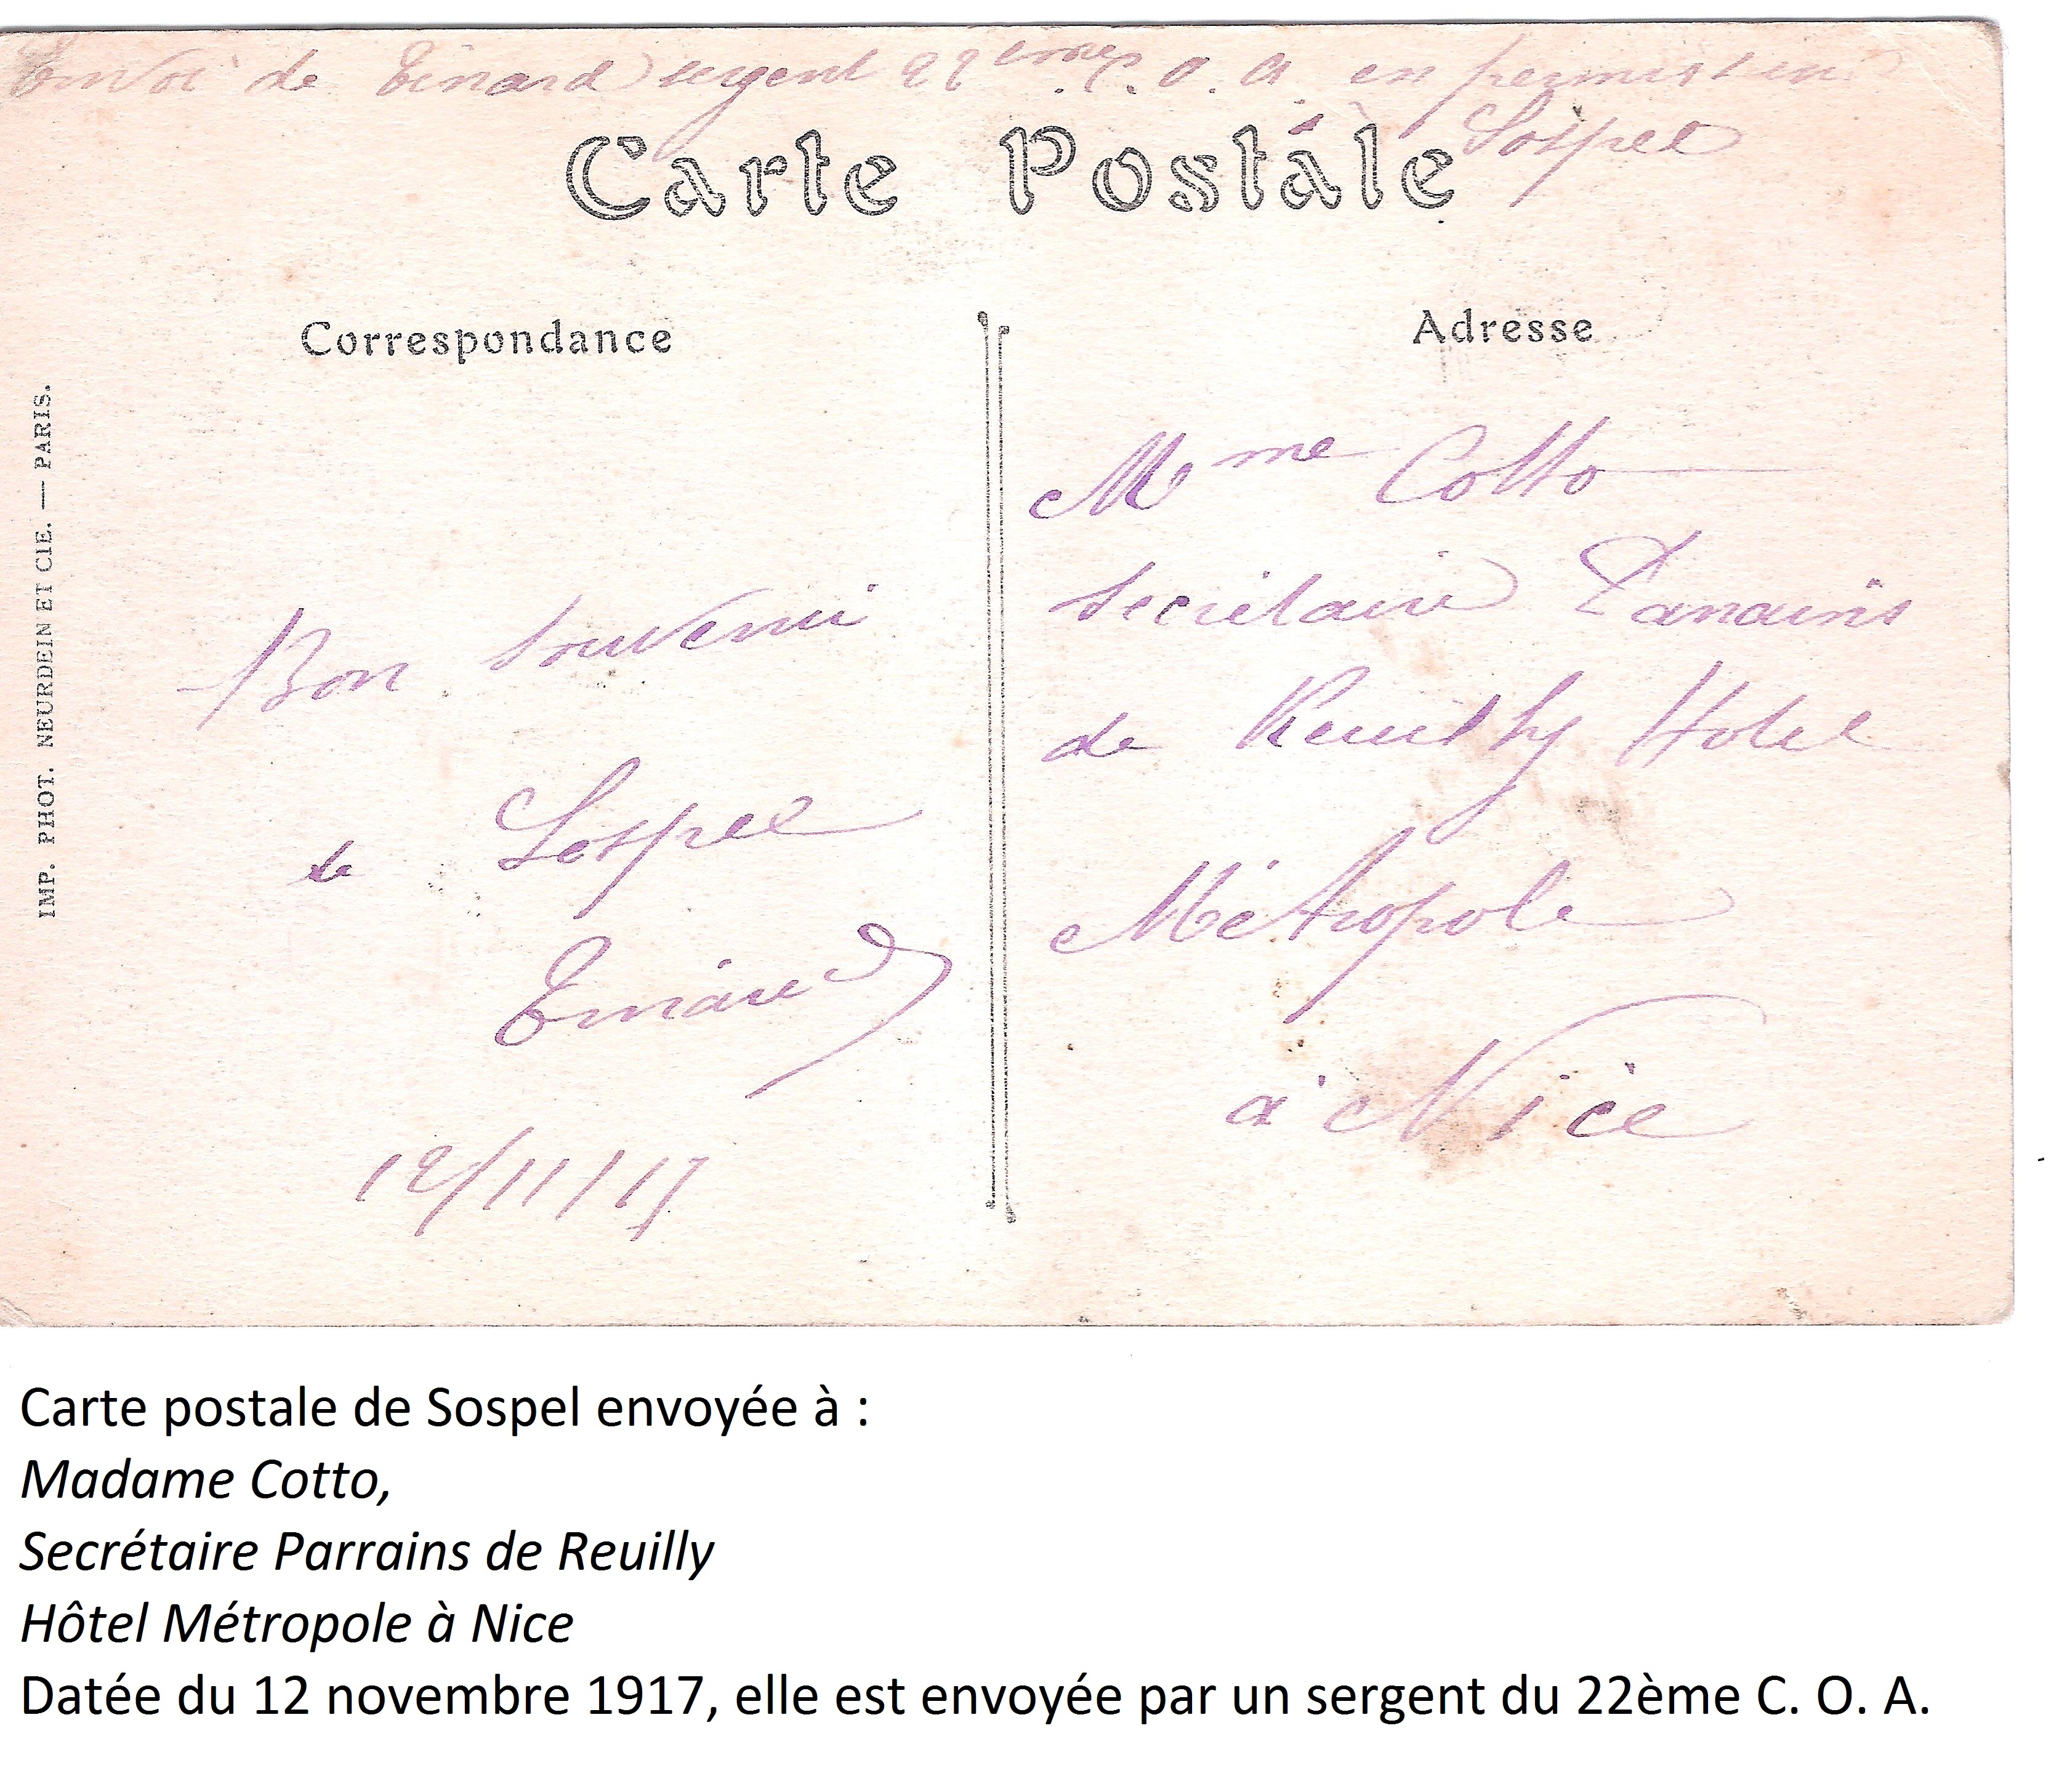 Envoi de Einard sergent 22ème C. O. A. en permission
à Sospel
Carte Postale
Correspondance
Adresse
IMP. PHOT. NEURDEIN ET CIE. — PARIS.
Bon souvenir
de Sospel
12/11/17
Mme Cotto
Secrétaire Parrains
de Reuilly Hotel
Métropole
à Nice
Carte postale de Sospel envoyée à :
Madame Cotto,
Secrétaire Parrains de Reuilly
Hôtel Métropole à Nice
Datée du 12 novembre 1917, elle est envoyée par un sergent du 22ème C. O. A.